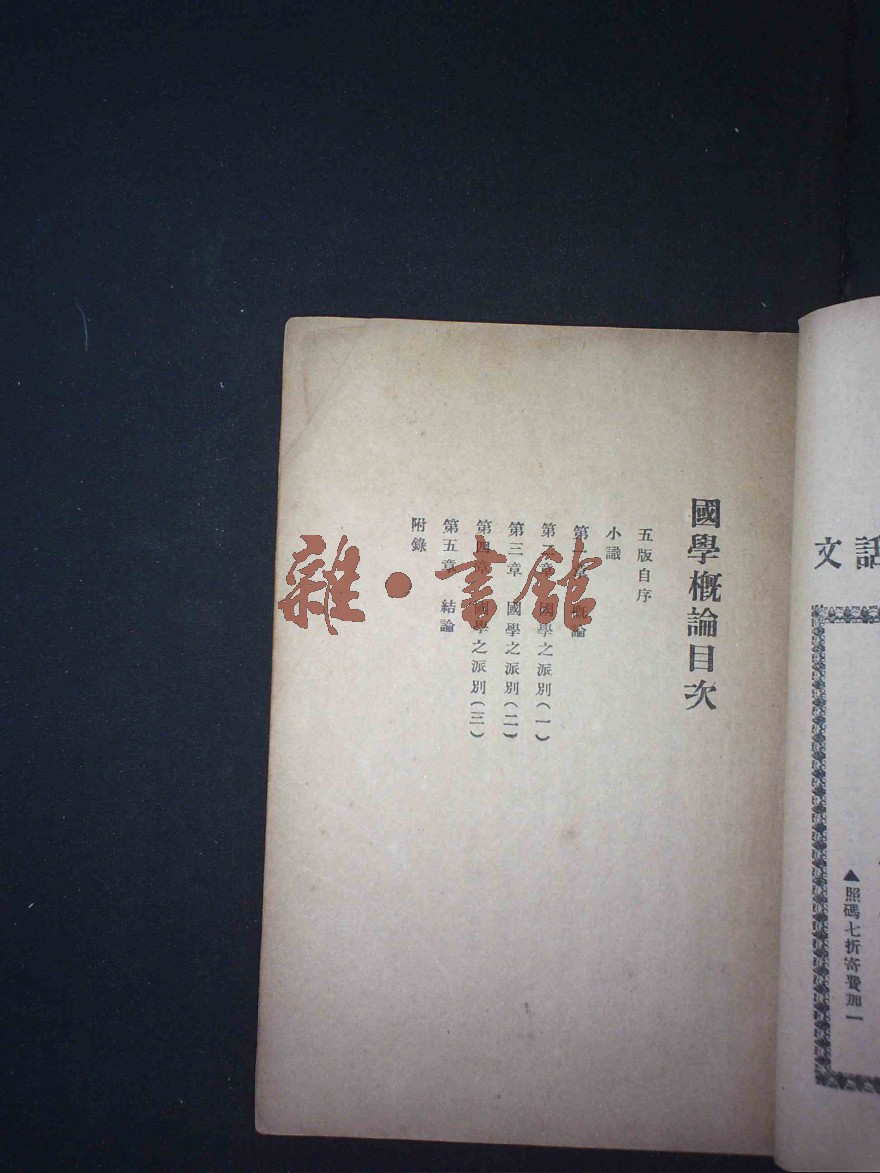 話文
▲照碼七折寄費加一
國學概論目次
五版自序
小識
第一章 概論
第二章 國學之派別（一）
第三章 國學之派別（二）
第四章 國學之派別（三）
第五章 結論
附錄
雜·書館